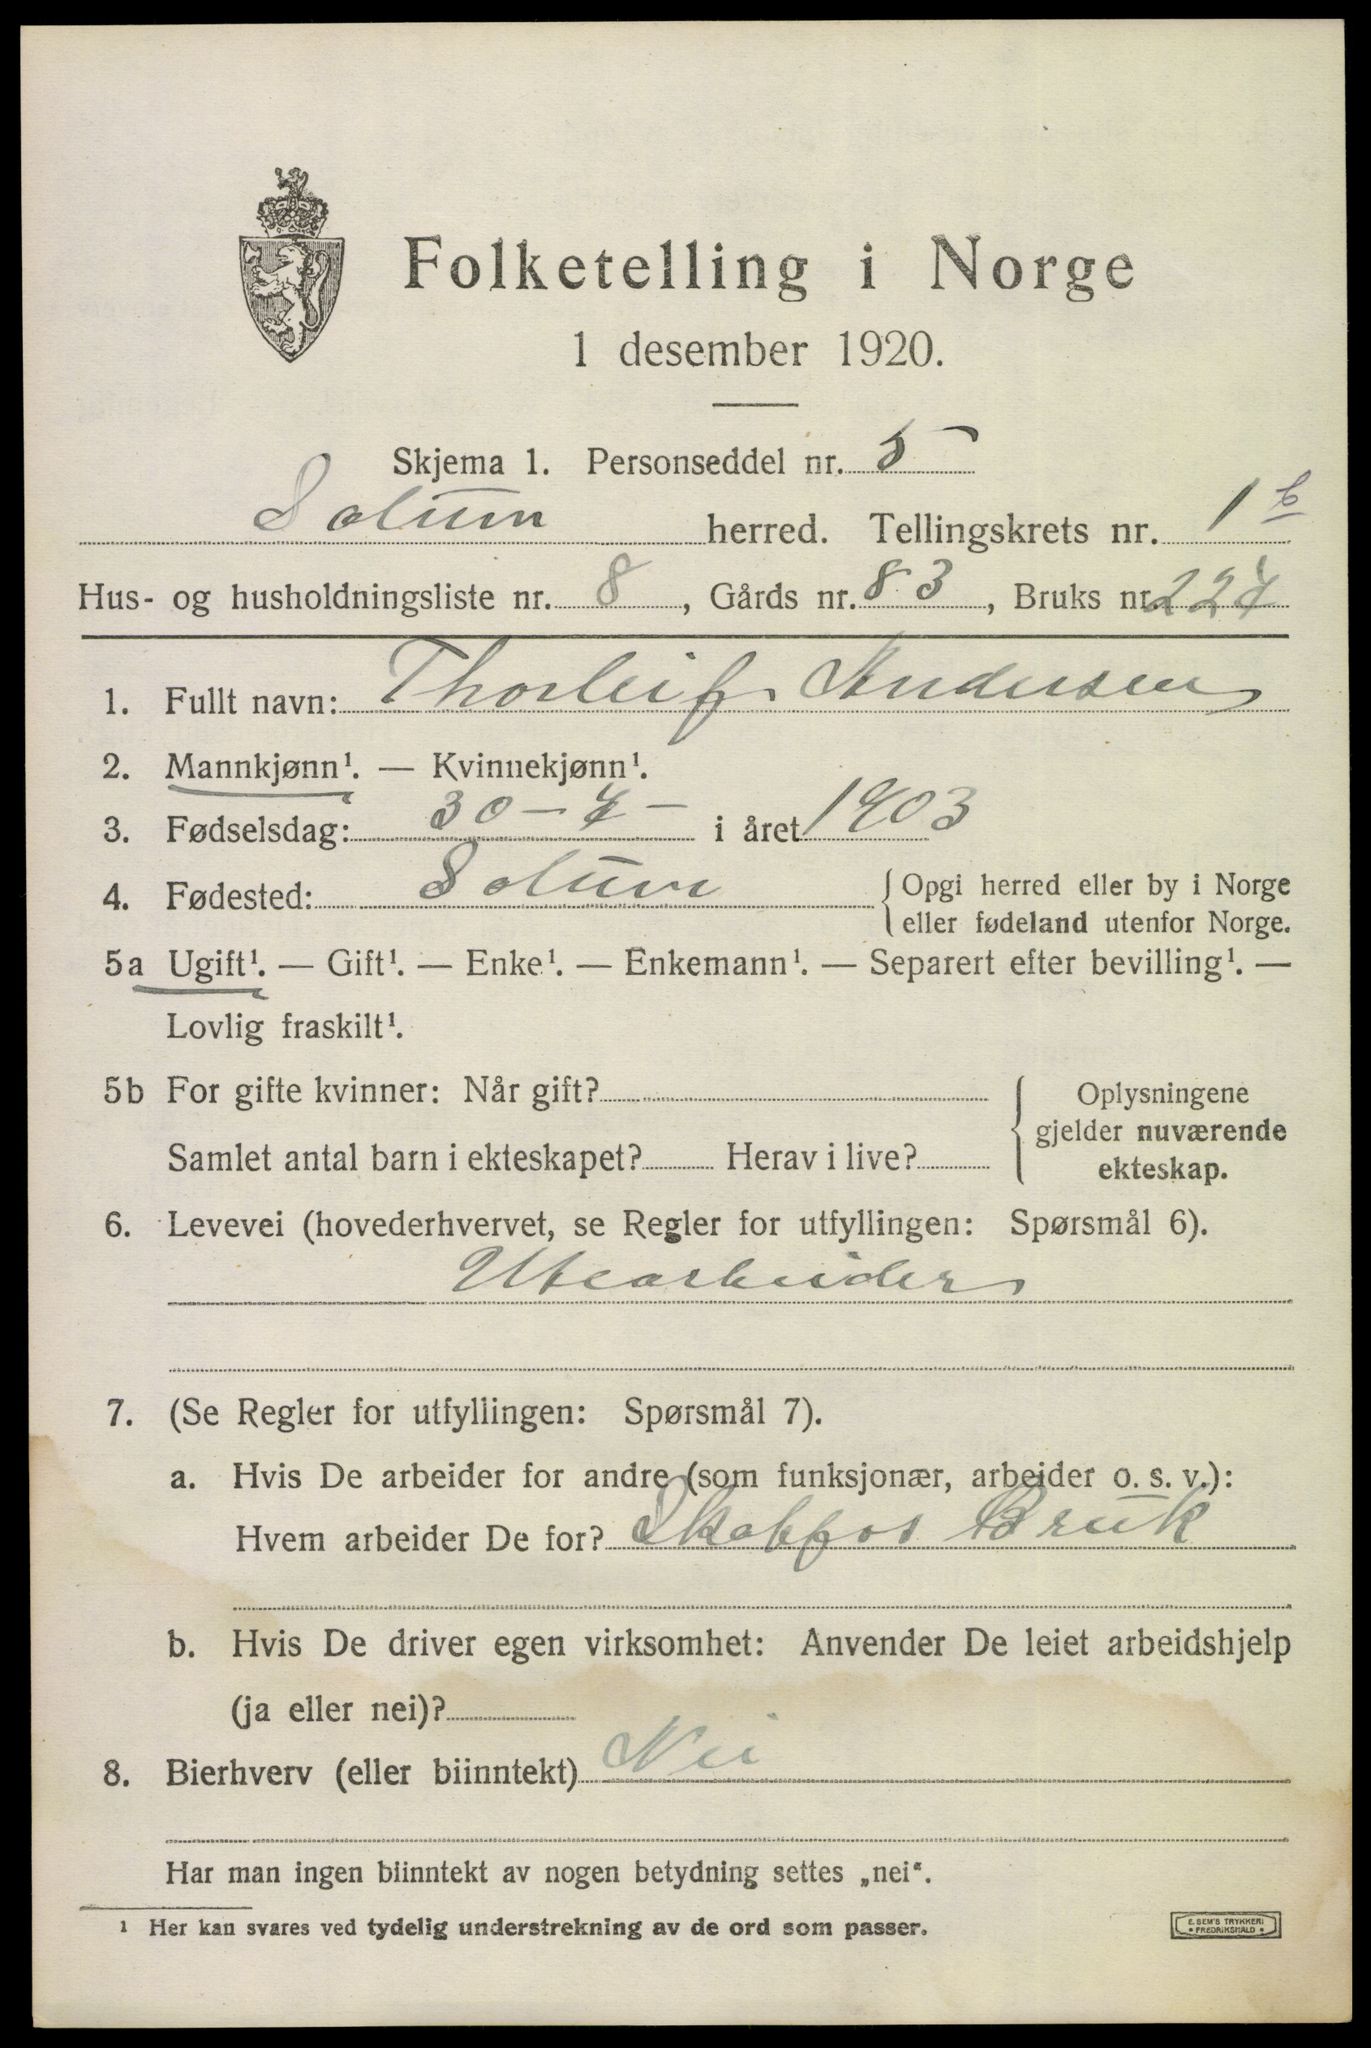 Folketelling i Norge
1 desember 1920.
Skjema 1. Personseddel nr. 5
Solum herred. Tellingskrets nr. 1 b
Hus- og husholdningsliste nr. 8, Gårds nr. 83, Bruks nr. 224
1. Fullt navn: Thorleif Andersen
2. Mannkjønn¹. — Kvinnekjønn¹.
3. Fødselsdag: 30 – 4 – i året 1903
4. Fødested: Solum { Opgi herred eller by i Norge
eller fødeland utenfor Norge.
5a Ugift¹. — Gift¹. — Enke¹. — Enkemann¹. — Separert efter bevilling¹. —
Lovlig fraskilt¹.
5b For gifte kvinner: Når gift?
Samlet antal barn i ekteskapet? Herav i live?
{ Oplysningene
gjelder nuværende
ekteskap.
6. Levevei (hovederhvervet, se Regler for utfyllingen: Spørsmål 6).
Utearbeider
7. (Se Regler for utfyllingen: Spørsmål 7).
a. Hvis De arbeider for andre (som funksjonær, arbeider o. s. v.):
Hvem arbeider De for? Skotfos Bruk
b. Hvis De driver egen virksomhet: Anvender De leiet arbeidshjelp
(ja eller nei)?
8. Bierhverv (eller biinntekt) Nei
Har man ingen biinntekt av nogen betydning settes „nei“.
¹ Her kan svares ved tydelig understrekning av de ord som passer.
E. SEM'S TRYKKERI
• FREDRIKSHALD •